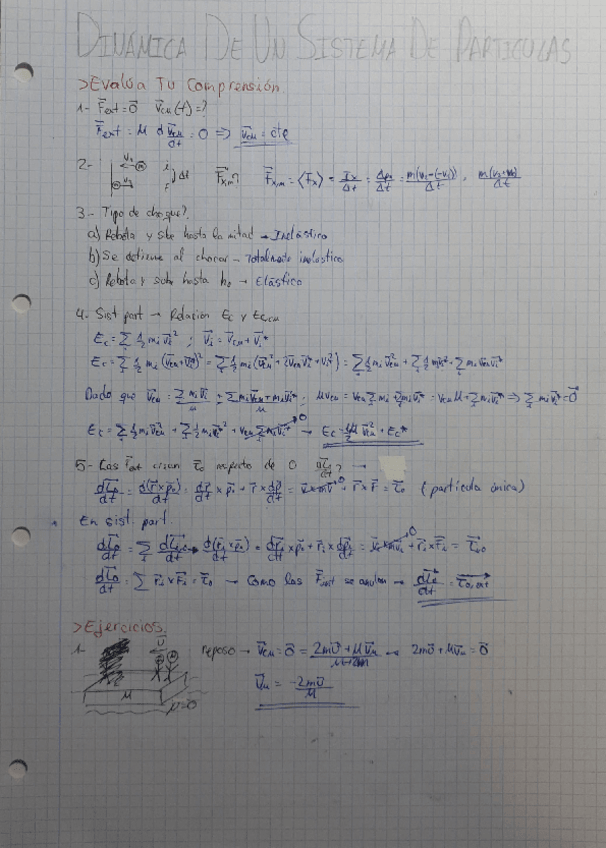 DINÁMICA DE UN SISTEMA DE PARTÍCULAS
>Evalúa Tu Comprensión
1- F⃗ext=0⃗ v⃗cm(t)=?
F⃗ext = M dv⃗cm/dt = 0 ⇒ v⃗cm = cte
2- F⃗x,m? F⃗x,m = <Fx> = Ix/Δt = Δpx/Δt = m(v₁-(-v₂))/Δt = m(v₁+v₂)/Δt
3.- Tipo de choque?
a) Rebota y sube hasta la mitad → Inelástico
b) Se detiene al chocar → Totalmente inelástico
c) Rebota y sube hasta h₀ → Elástico
4- Sist part → Relación Ec y Ec,cm
Ec = Σ ½ mᵢvᵢ² ; v⃗ᵢ = v⃗cm + vᵢ*
Ec = Σ ½ mᵢ (v⃗cm+v⃗ᵢ*)² = Σ ½ mᵢ (v⃗cm² + 2v⃗cm vᵢ* + vᵢ*²) = Σ ½ mᵢ v⃗cm² + Σ ½ mᵢvᵢ*² + Σ mᵢ vcm vᵢ*
Dado que v⃗cm = Σ mᵢv⃗ᵢ/M = Σ mᵢv⃗cm + mᵢvᵢ*/M ; Mvcm = vcm Σ mᵢ + Σ mᵢvᵢ* = vcm M + Σ mᵢvᵢ* ⇒ Σ mᵢvᵢ* = 0⃗
Ec = Σ ½ mᵢ v⃗cm² + Σ ½ mᵢvᵢ*² + vcm Σ mᵢvᵢ* 0 → Ec = ½ M v⃗cm² + Ec*
5- Las F⃗ext crean τ⃗₀ respecto de O dL⃗/dt? →
dL⃗₀/dt = d(r⃗×p⃗₀)/dt = dr⃗/dt × p⃗₀ + r⃗ × dp⃗/dt = v⃗×mv⃗ 0 + r⃗ × F⃗ = τ⃗₀ (partícula única)
En sist. part.
dL⃗₀/dt = Σ dL⃗ᵢ,₀/dt → d(r⃗ᵢ×p⃗ᵢ)/dt = dr⃗ᵢ/dt × p⃗ᵢ + r⃗ᵢ × dp⃗ᵢ/dt = v⃗ᵢ×mv⃗ᵢ 0 + r⃗ᵢ×F⃗ᵢ = τ⃗ᵢ,₀
dL⃗₀/dt = Σ r⃗ᵢ×F⃗ᵢ = τ⃗₀ → Como las F⃗int se anulan → dL⃗₀/dt = τ⃗₀,ext
>Ejercicios
1- reposo → v⃗cm = 0⃗ = 2mv⃗ + Mv⃗M/M+2m → 2mv⃗ + Mv⃗M = 0⃗
M
μ=0
v⃗M = -2mv⃗/M